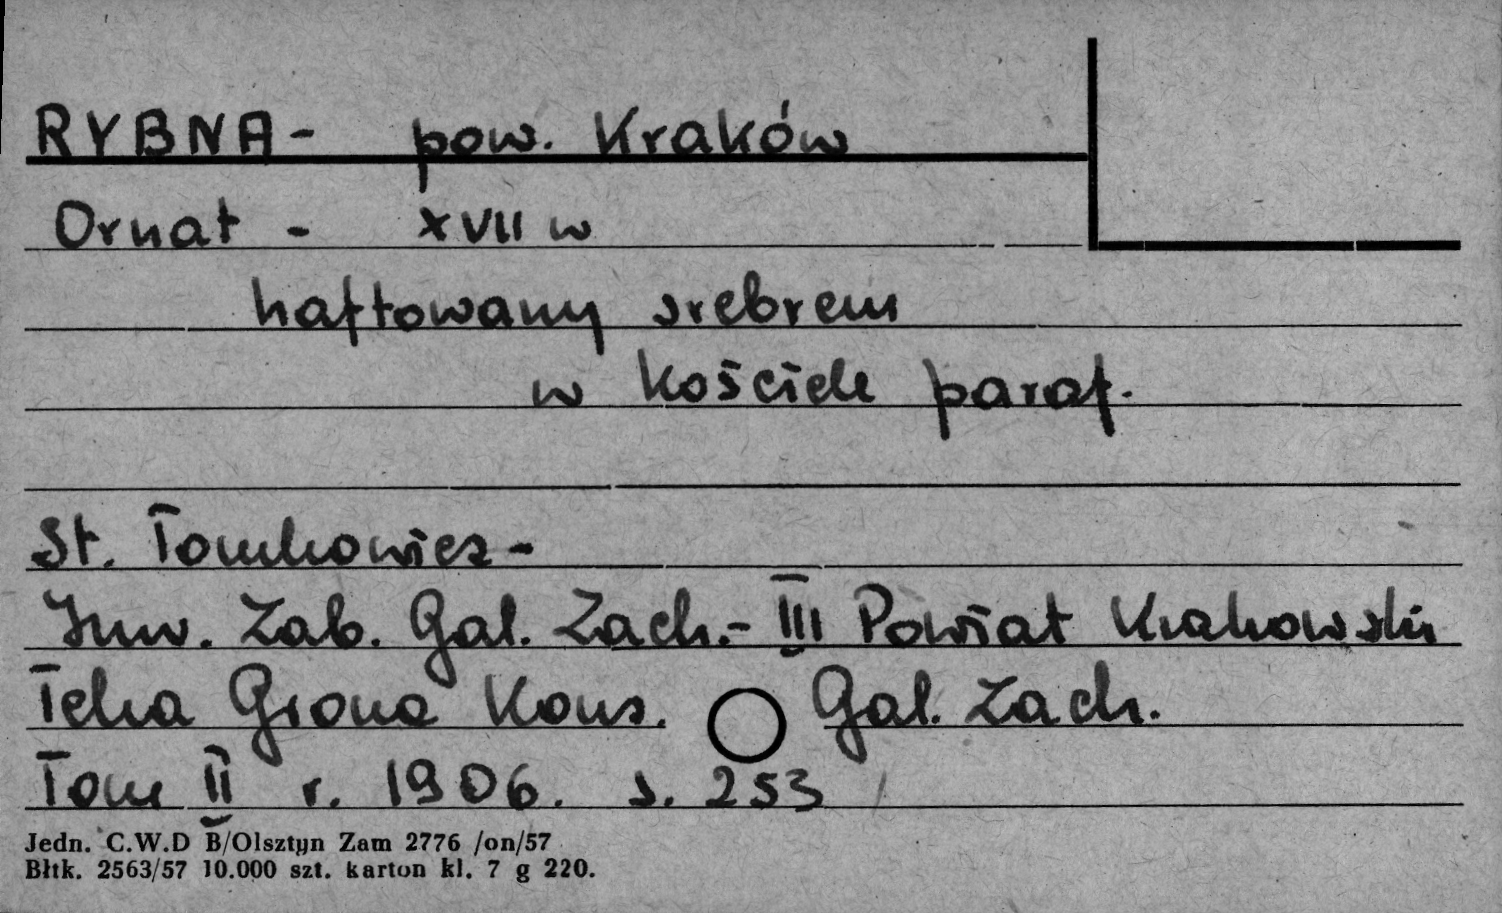 RYBNA - pow. Kraków
Ornat - XVII w
haftowany srebrem
w kościele paraf.
St. Tomkowicz -
Inw. Zab. Gal. Zach. - III Powiat Krakowski
Teka Grona Kons. Gal. Zach.
Tom II r. 1906. s. 253
Jedn. C.W.D B/Olsztyn Zam 2776 /on/57
Błtk. 2563/57 10.000 szt. karton kl. 7 g 220.